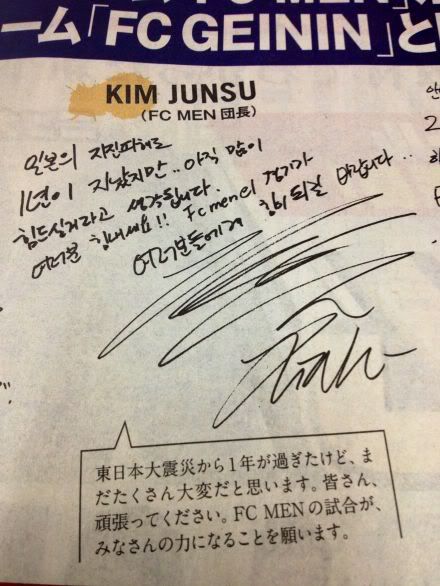 FC MEN」
ーム「FC GEININ」と
KIM JUNSU
(FC MEN 団長)
일본의 지진피해로
1년이 지났지만.. 아직 많이
힘드실거라고 생각듭니다.
여러분 힘내세요!! Fc men의 경기가
여러분들에게 힘이 되길 바랍니다..
東日本大震災から1年が過ぎたけど、ま
だたくさん大変だと思います。皆さん、
頑張ってください。FC MENの試合が、
みなさんの力になることを願います。